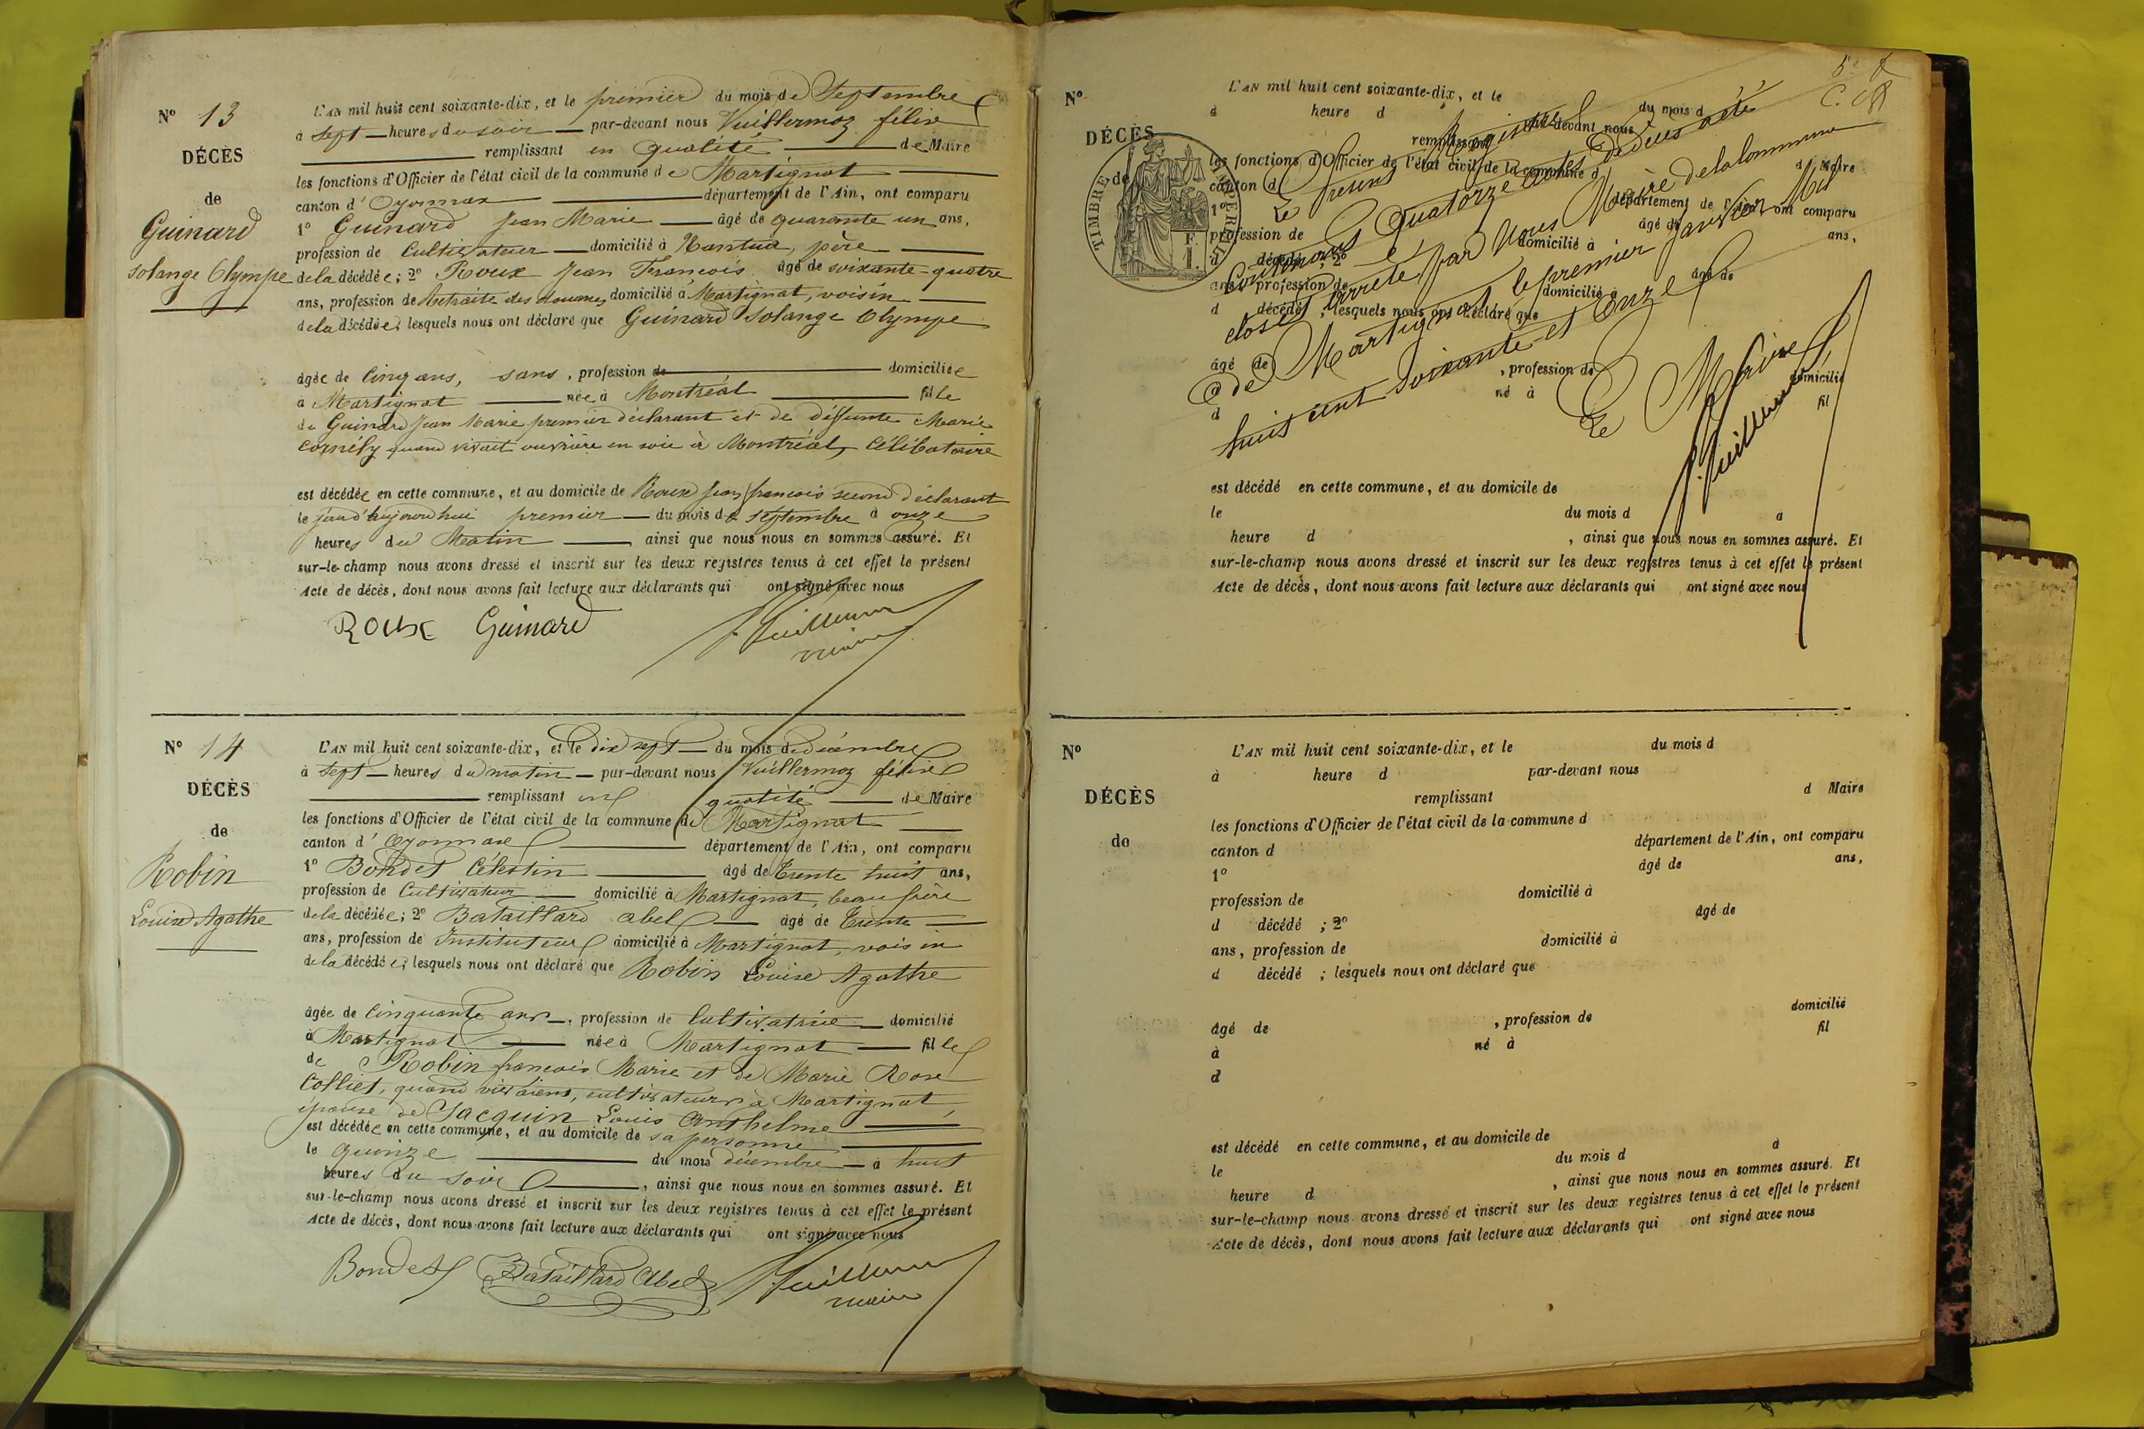 N° 13
DÉCÈS
de
Guinard
Solange Olympe
L'AN mil huit cent soixante-dix, et le premier du mois de Septembre
à sept heures du soir par-devant nous Vuillermoz félix
remplissant en qualité de Maire
les fonctions d'Officier de l'état civil de la commune de Martignat
canton d'Oyonnax département de l'Ain, ont comparu
1° Guinard Jean Marie âgé de quarante un ans,
profession de Cultivateur domicilié à Nantua, père
de la décédée; 2° Roux Jean François âgé de soixante-quatre
ans, profession de Retraité des douanes domicilié à Martignat, voisin
de la décédée; lesquels nous ont déclaré que Guinard Solange Olympe
âgée de Cinq ans, sans, profession de domiciliée
à Martignat née à Montréal fille
de Guinard Jean Marie premier déclarant et de déffunte Marie
Cornély quand vivait ouvrière en soie à Montréal, Célibataire
est décédée en cette commune, et au domicile de Roux Jean françois second déclarant
le jourd'hujourd'hui premier du mois de septembre à onze
heures du Matin ainsi que nous nous en sommes assuré. Et
sur-le-champ nous avons dressé et inscrit sur les deux registres tenus à cet effet le présent
Acte de décès, dont nous avons fait lecture aux déclarants qui ont signé avec nous
Roux Guinard f. Vuillermoz
maire
N° 14
DÉCÈS
de
Robin
Louise Agathe
L'AN mil huit cent soixante-dix, et le dix sept du mois de décembre
à sept heures du matin par-devant nous Vuillermoz félix
remplissant en qualité de Maire
les fonctions d'Officier de l'état civil de la commune de Martignat
canton d'Oyonnax département de l'Ain, ont comparu
1° Bondet Célestin âgé de Trente huit ans,
profession de Cultivateur domicilié à Martignat, beau frère
de la décédée; 2° Bataillard abel âgé de Trente
ans, profession de Instituteur domicilié à Martignat, voisin
de la décédée; lesquels nous ont déclaré que Robin Louise Agathe
âgée de Cinquante ans, profession de Cultivatrice domicilié
à Martignat née à Martignat fille
de Robin françois Marie et de Marie Rose
Colliet, quand vivaient, cultivateurs à Martignat
épouse de Jacquin Louis Anthelme
est décédée en cette commune, et au domicile de sa personne
le quinze du mois décembre à huit
heures du soir, ainsi que nous nous en sommes assuré. Et
sur-le-champ nous avons dressé et inscrit sur les deux registres tenus à cet effet le présent
Acte de décès, dont nous avons fait lecture aux déclarants qui ont signé avec nous
Bondet Bataillard Abel f. Vuillermoz
maire
N°
DÉCÈS
de
TIMBRE IMPÉRIAL
L'AN mil huit cent soixante-dix, et le du mois d
à heure d par-devant nous
remplissant d Maire
les fonctions d'Officier de l'état civil de la commune d
canton d département de l'Ain, ont comparu
1° âgé de ans,
profession de domicilié à
d décédé ; 2° âgé de
ans, profession de domicilié à
d décédé ; lesquels nous ont déclaré que
âgé de , profession de domicilié
à né à fil
d
Le Présent Registre
Contenant Quatorze actes de décès a été
clos et arrêté par Nous Maire de la Commune
de Martignat le premier Janvier Mil
huit cent soixante et onze
Le Maire
f. Vuillermoz
est décédé en cette commune, et au domicile de
le du mois d à
heure d , ainsi que nous nous en sommes assuré. Et
sur-le-champ nous avons dressé et inscrit sur les deux registres tenus à cet effet le présent
Acte de décès, dont nous avons fait lecture aux déclarants qui ont signé avec nous
N°
DÉCÈS
de
L'AN mil huit cent soixante-dix, et le du mois d
à heure d par-devant nous
remplissant d Maire
les fonctions d'Officier de l'état civil de la commune d
canton d département de l'Ain, ont comparu
1° âgé de ans,
profession de domicilié à
d décédé ; 2° âgé de
ans, profession de domicilié à
d décédé ; lesquels nous ont déclaré que
âgé de , profession de domicilié
à né à fil
d
est décédé en cette commune, et au domicile de
le du mois d à
heure d , ainsi que nous nous en sommes assuré. Et
sur-le-champ nous avons dressé et inscrit sur les deux registres tenus à cet effet le présent
Acte de décès, dont nous avons fait lecture aux déclarants qui ont signé avec nous